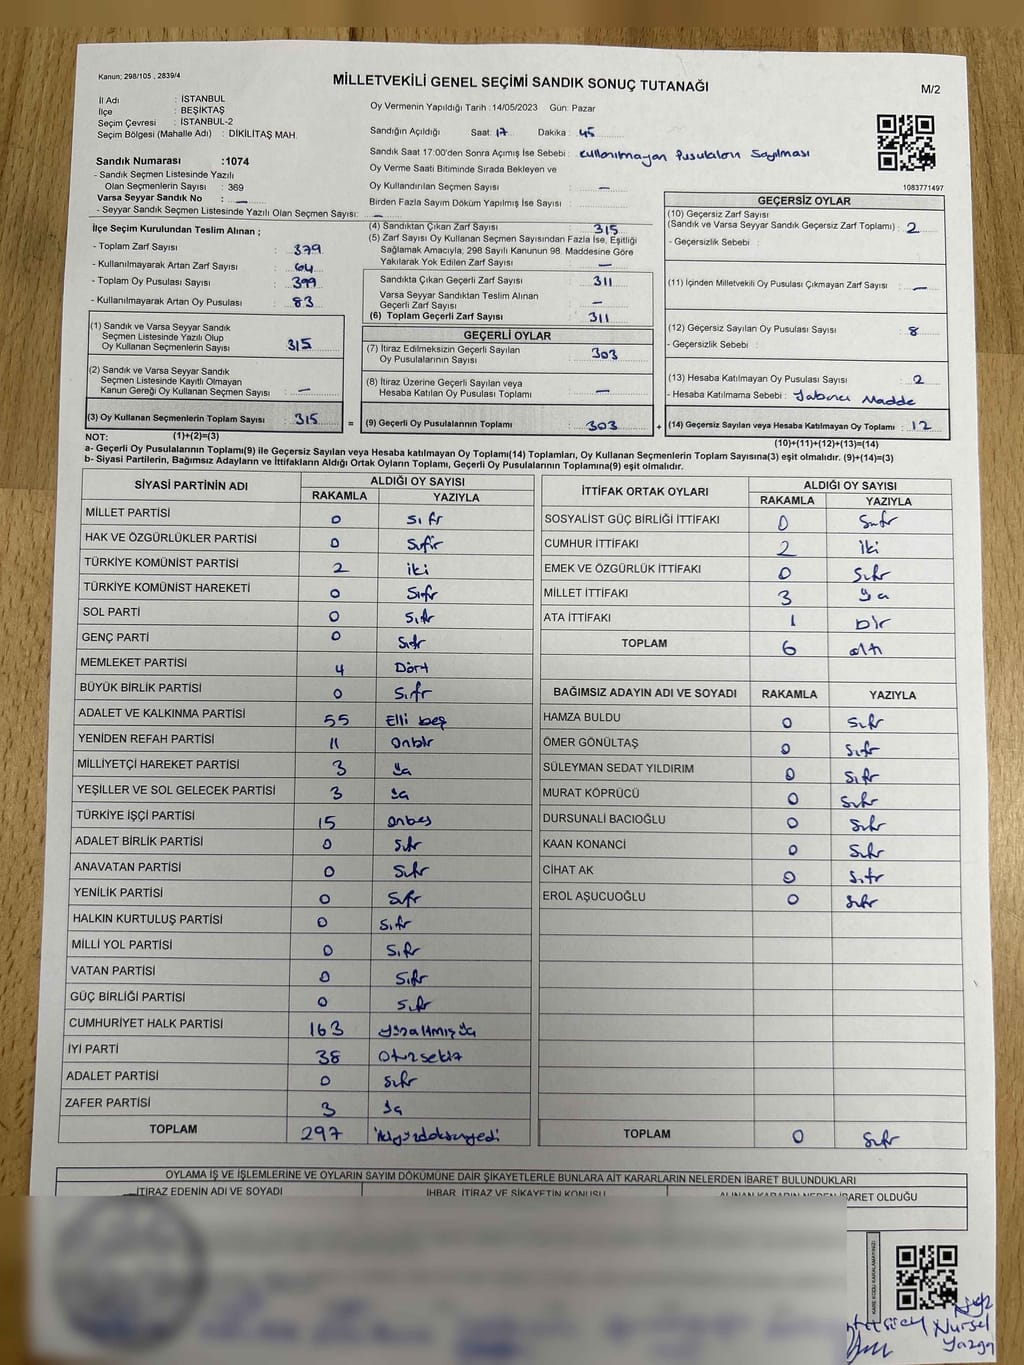 Kanun; 298/105 , 2839/4
MİLLETVEKİLİ GENEL SEÇİMİ SANDIK SONUÇ TUTANAĞI
M/2
İl Adı : İSTANBUL
İlçe : BEŞİKTAŞ
Seçim Çevresi : İSTANBUL-2
Seçim Bölgesi (Mahalle Adı) : DİKİLİTAŞ MAH.
Sandık Numarası :1074
- Sandık Seçmen Listesinde Yazılı
Olan Seçmenlerin Sayısı : 369
Varsa Seyyar Sandık No : —
- Seyyar Sandık Seçmen Listesinde Yazılı Olan Seçmen Sayısı: —
Oy Vermenin Yapıldığı Tarih : 14/05/2023 Gün: Pazar
Sandığın Açıldığı Saat: 17 Dakika : 45
Sandık Saat 17:00'den Sonra Açımış İse Sebebi : kullanılmayan Pusulaların Sayılması
Oy Verme Saati Bitiminde Sırada Bekleyen ve
Oy Kullandırılan Seçmen Sayısı : —
Birden Fazla Sayım Döküm Yapılmış İse Sayısı :
1083771497
İlçe Seçim Kurulundan Teslim Alınan ;
- Toplam Zarf Sayısı : 379
- Kullanılmayarak Artan Zarf Sayısı : 64
- Toplam Oy Pusulası Sayısı : 399
- Kullanılmayarak Artan Oy Pusulası : 83
(1) Sandık ve Varsa Seyyar Sandık
Seçmen Listesinde Yazılı Olup
Oy Kullanan Seçmenlerin Sayısı : 315
(2) Sandık ve Varsa Seyyar Sandık
Seçmen Listesinde Kayıtlı Olmayan
Kanun Gereği Oy Kullanan Seçmen Sayısı : —
(3) Oy Kullanan Seçmenlerin Toplam Sayısı : 315
(4) Sandıktan Çıkan Zarf Sayısı : 315
(5) Zarf Sayısı Oy Kullanan Seçmen Sayısından Fazla İse, Eşitliği
Sağlamak Amacıyla, 298 Sayılı Kanunun 98. Maddesine Göre
Yakılarak Yok Edilen Zarf Sayısı : —
Sandıkta Çıkan Geçerli Zarf Sayısı : 311
Varsa Seyyar Sandıktan Teslim Alınan
Geçerli Zarf Sayısı : —
(6) Toplam Geçerli Zarf Sayısı : 311
GEÇERLİ OYLAR
(7) İtiraz Edilmeksizin Geçerli Sayılan
Oy Pusulalarının Sayısı : 303
(8) İtiraz Üzerine Geçerli Sayılan veya
Hesaba Katılan Oy Pusulası Toplamı : —
= (9) Geçerli Oy Pusulalarının Toplamı : 303
GEÇERSİZ OYLAR
(10) Geçersiz Zarf Sayısı
(Sandık ve Varsa Seyyar Sandık Geçersiz Zarf Toplamı) : 2
- Geçersizlik Sebebi :
(11) İçinden Milletvekili Oy Pusulası Çıkmayan Zarf Sayısı : —
(12) Geçersiz Sayılan Oy Pusulası Sayısı : 8
- Geçersizlik Sebebi :
(13) Hesaba Katılmayan Oy Pusulası Sayısı : 2
- Hesaba Katılmama Sebebi : Yabancı Madde
+ (14) Geçersiz Sayılan veya Hesaba Katılmayan Oy Toplamı : 12
NOT: (1)+(2)=(3)
(10)+(11)+(12)+(13)=(14)
a- Geçerli Oy Pusulalarının Toplamı(9) ile Geçersiz Sayılan veya Hesaba katılmayan Oy Toplamı(14) Toplamları, Oy Kullanan Seçmenlerin Toplam Sayısına(3) eşit olmalıdır. (9)+(14)=(3)
b- Siyasi Partilerin, Bağımsız Adayların ve İttifakların Aldığı Ortak Oyların Toplamı, Geçerli Oy Pusulalarının Toplamına(9) eşit olmalıdır.
SİYASİ PARTİNİN ADI ALDIĞI OY SAYISI
RAKAMLA YAZIYLA
MİLLET PARTİSİ 0 Sıfır
HAK VE ÖZGÜRLÜKLER PARTİSİ 0 Sıfır
TÜRKİYE KOMÜNİST PARTİSİ 2 iki
TÜRKİYE KOMÜNİST HAREKETİ 0 Sıfır
SOL PARTİ 0 Sıfır
GENÇ PARTİ 0 Sıfır
MEMLEKET PARTİSİ 4 Dört
BÜYÜK BİRLİK PARTİSİ 0 Sıfır
ADALET VE KALKINMA PARTİSİ 55 Elli beş
YENİDEN REFAH PARTİSİ 11 Onbir
MİLLİYETÇİ HAREKET PARTİSİ 3 Üç
YEŞİLLER VE SOL GELECEK PARTİSİ 3 Üç
TÜRKİYE İŞÇİ PARTİSİ 15 Onbeş
ADALET BİRLİK PARTİSİ 0 Sıfır
ANAVATAN PARTİSİ 0 Sıfır
YENİLİK PARTİSİ 0 Sıfır
HALKIN KURTULUŞ PARTİSİ 0 Sıfır
MİLLİ YOL PARTİSİ 0 Sıfır
VATAN PARTİSİ 0 Sıfır
GÜÇ BİRLİĞİ PARTİSİ 0 Sıfır
CUMHURİYET HALK PARTİSİ 163 yüzaltmışüç
İYİ PARTİ 38 Otuzsekiz
ADALET PARTİSİ 0 Sıfır
ZAFER PARTİSİ 3 Üç
TOPLAM 297 ikiyüzdoksanyedi
İTTİFAK ORTAK OYLARI ALDIĞI OY SAYISI
RAKAMLA YAZIYLA
SOSYALİST GÜÇ BİRLİĞİ İTTİFAKI 0 Sıfır
CUMHUR İTTİFAKI 2 iki
EMEK VE ÖZGÜRLÜK İTTİFAKI 0 Sıfır
MİLLET İTTİFAKI 3 Üç
ATA İTTİFAKI 1 bir
TOPLAM 6 altı
BAĞIMSIZ ADAYIN ADI VE SOYADI RAKAMLA YAZIYLA
HAMZA BULDU 0 Sıfır
ÖMER GÖNÜLTAŞ 0 Sıfır
SÜLEYMAN SEDAT YILDIRIM 0 Sıfır
MURAT KÖPRÜCÜ 0 Sıfır
DURSUNALİ BACIOĞLU 0 Sıfır
KAAN KONANCİ 0 Sıfır
CİHAT AK 0 Sıfır
EROL AŞUCUOĞLU 0 Sıfır
TOPLAM 0 Sıfır
OYLAMA İŞ VE İŞLEMLERİNE VE OYLARIN SAYIM DÖKÜMÜNE DAİR ŞİKAYETLERLE BUNLARA AİT KARARLARIN NELERDEN İBARET BULUNDUKLARI
İTİRAZ EDENİN ADI VE SOYADI İHBAR, İTİRAZ VE ŞİKAYETİN KONUSU ALINAN KARARIN NEDEN İBARET OLDUĞU
KARE KODU KARALAMAYINIZ!
Nursel
Yazgı